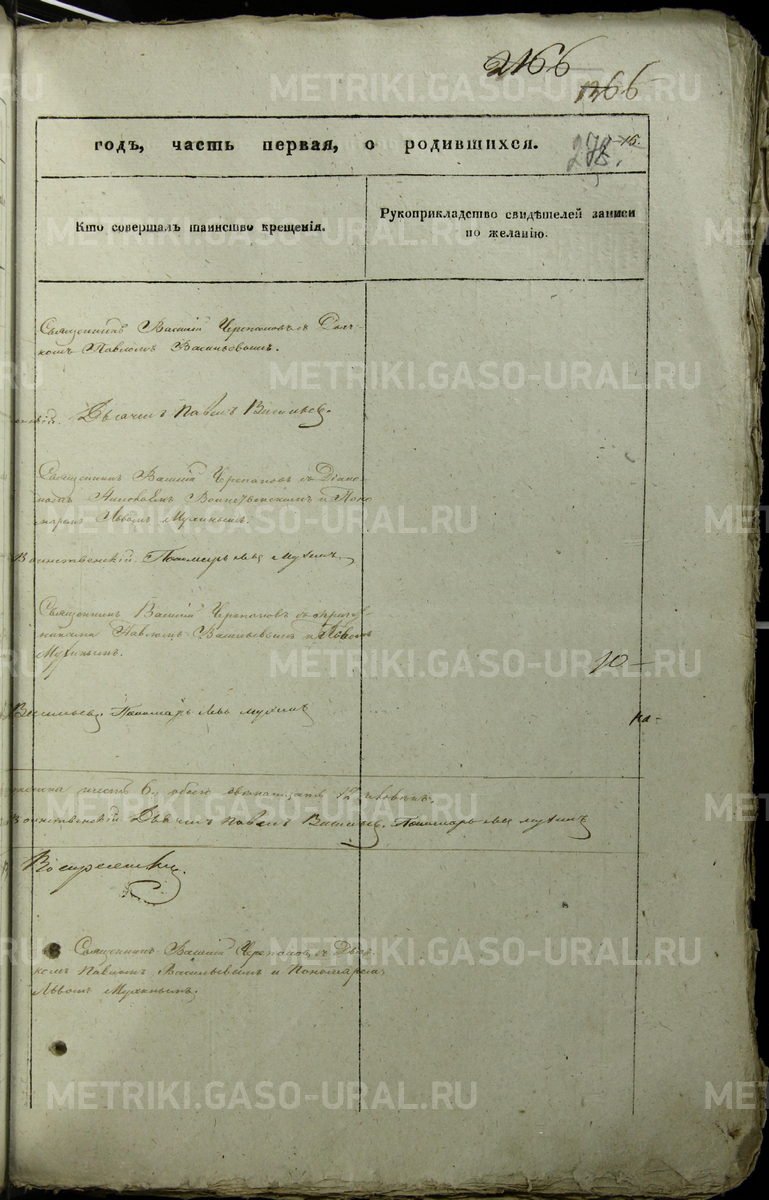 2166
1266
годъ, часть первая, о родившихся.
15.
Кто совершалъ таинство крещенія.
Рукоприкладство свидѣтелей записи
по желанію.
Священникъ Василій Черепановъ съ Дьяч-
комъ Павломъ Васильевымъ.
Дьячекъ Павелъ Васильевъ.
Священникъ Василій Черепановъ съ Діако-
номъ Воинственскимъ и Поно-
маремъ Львомъ Мухинымъ.
Воинственскій Пономарь Левъ Мухинъ
Священникъ Василій Черепановъ съ причет-
никами Павломъ Васильевымъ и Львомъ
Мухинымъ.
10
Васильевъ. Пономарь Левъ Мухинъ
ка-
шесть 6, обоего человѣкъ.
Воинственскій Дьячекъ Павелъ Васильевъ. Пономарь Левъ Мухинъ
Священникъ Василій Черепановъ съ Дьяч-
комъ Павломъ Васильевымъ и Пономаремъ
Львомъ Мухинымъ.
METRIKI.GASO-URAL.RU